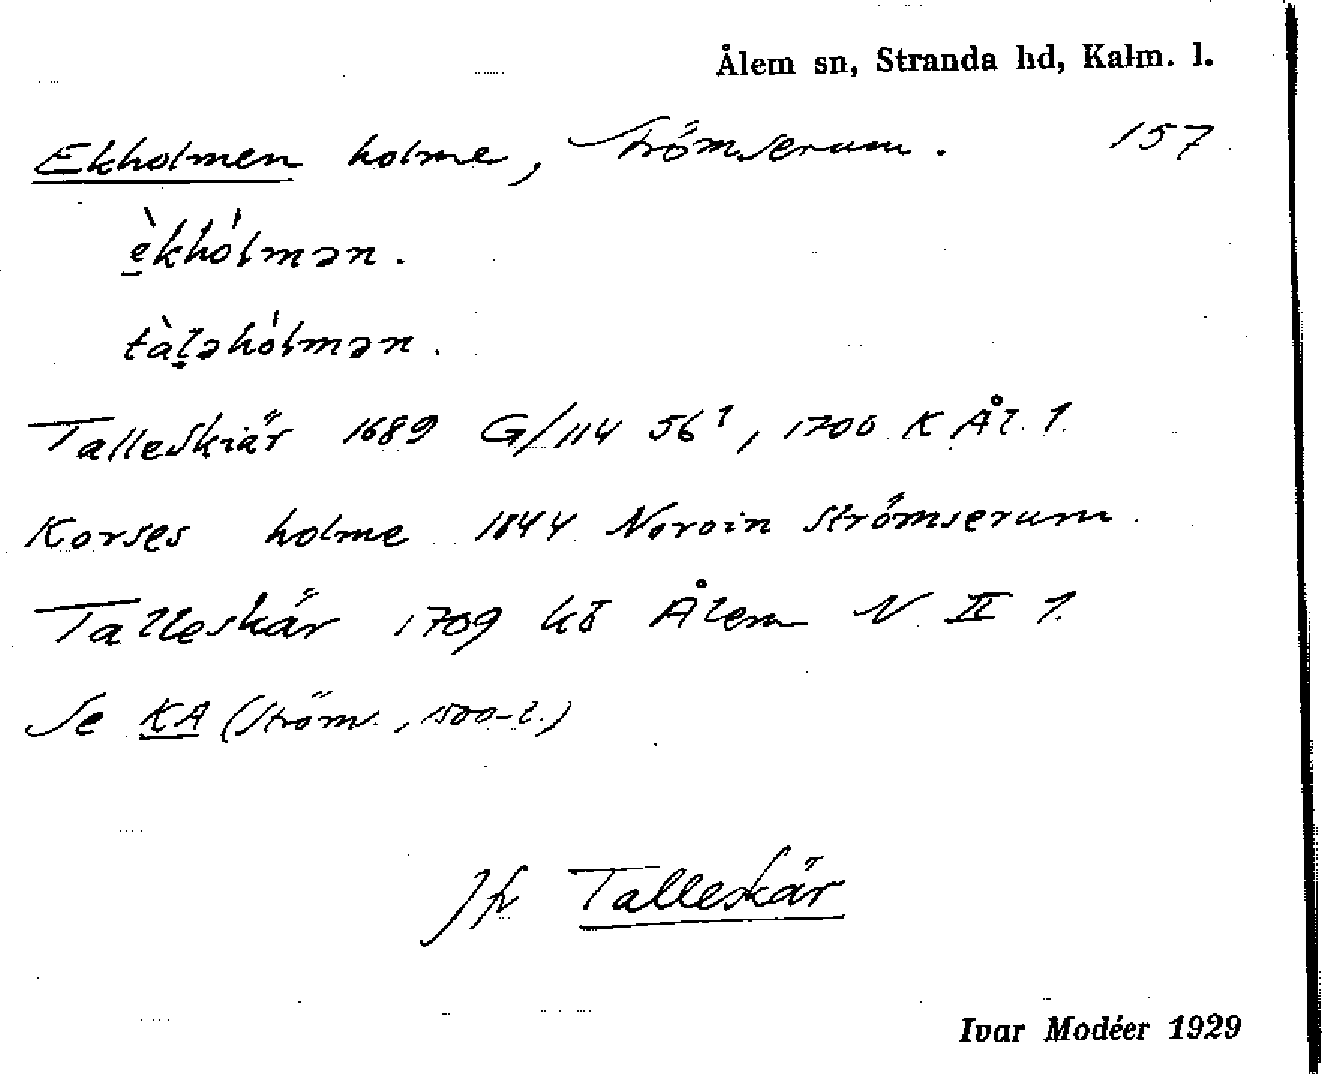 Ålem sn, Stranda hd, Kalm. l.
Ekholmen holme, Strömserum. 157
èkhólmən.
tàḷəhólmən.
Talleskiär 1689 G/114 56¹, 1706 K Ål. 1.
Korses holme 1844 Norvin Strömserum.
Talleskär 1709 kō Ålem N II 1.
Se KA (Ström., 1500-t.)
Jfr Talleskär
Ivar Modéer 1929